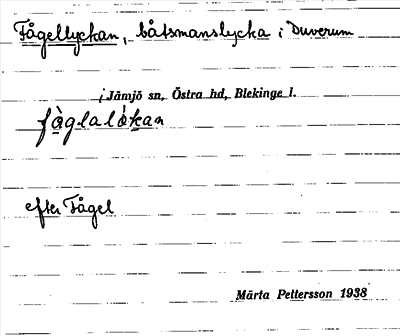 Fågellyckan, båtsmanslycka i Duverum
i Jämjö sn, Östra hd, Blekinge l.
fògla lókan
efter Fågel
Märta Pettersson 1938